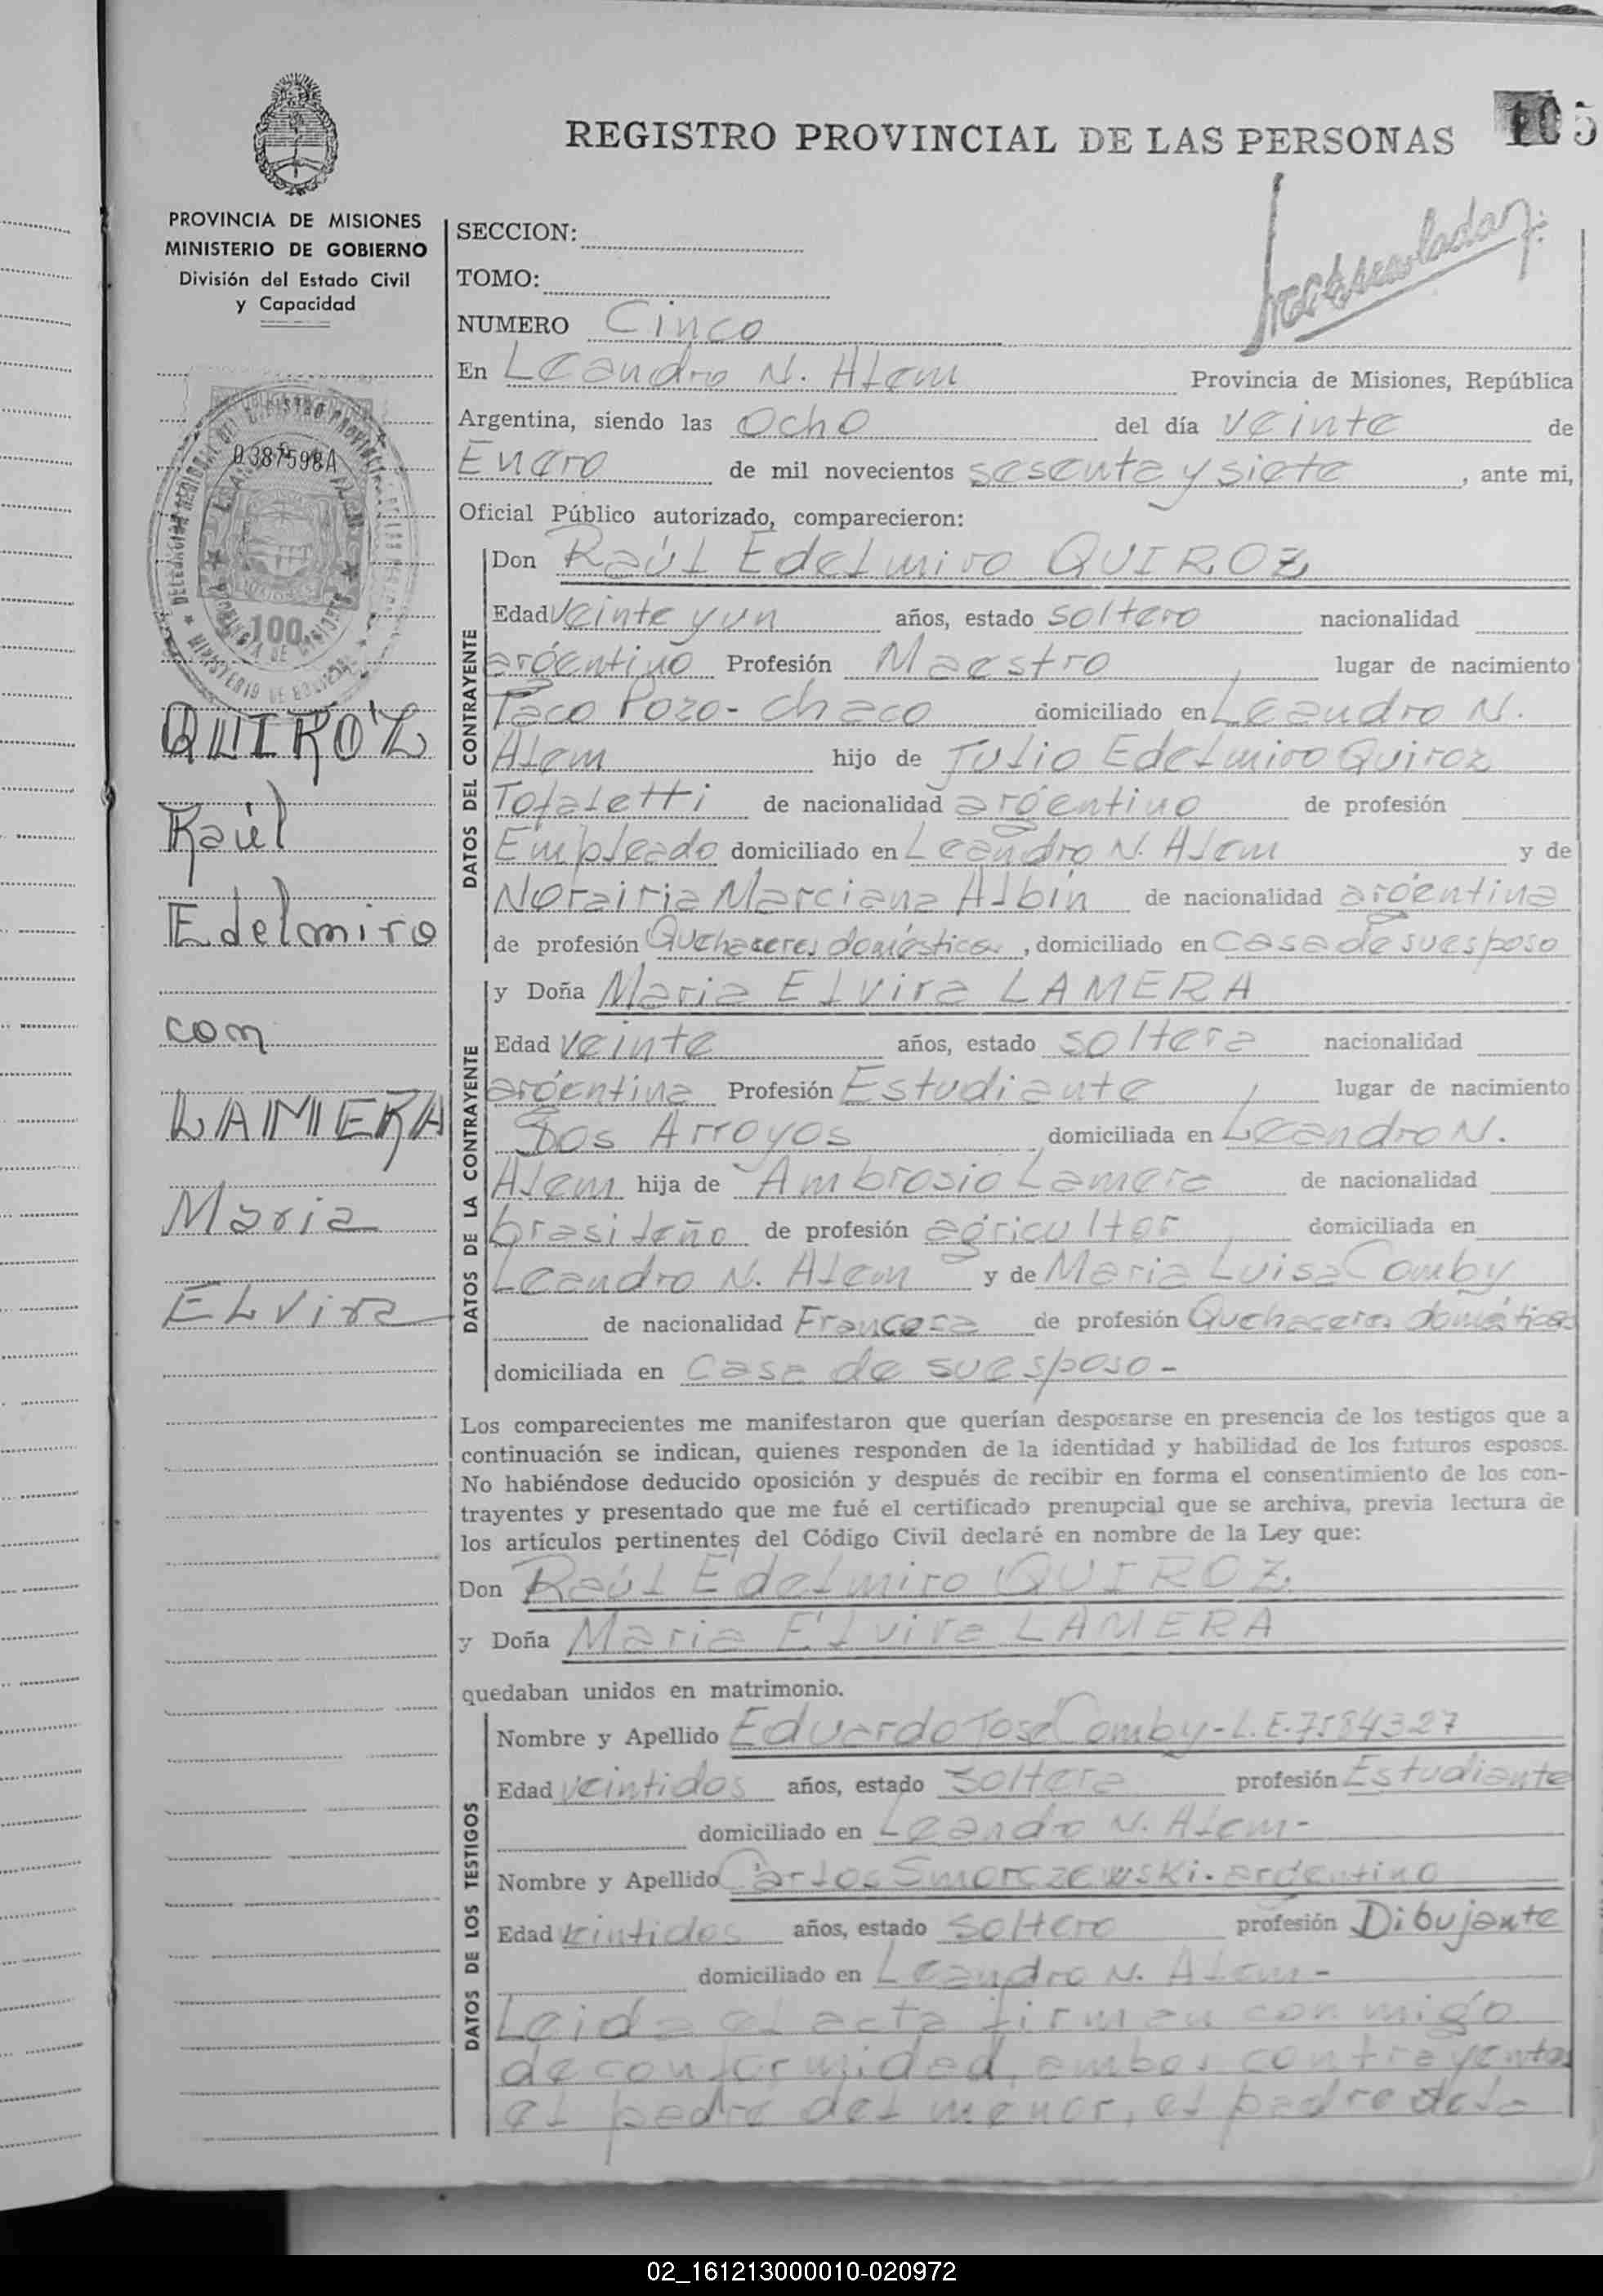 105
REGISTRO PROVINCIAL DE LAS PERSONAS
PROVINCIA DE MISIONES
MINISTERIO DE GOBIERNO
División del Estado Civil
y Capacidad
0387598A
100
QUIROZ
Raúl
Edelmiro
con
LAMERA
Maria
ELvira
SECCION:
TOMO:
NUMERO Cinco
En Leandro N. Alem Provincia de Misiones, República
Argentina, siendo las Ocho del día veinte de
Enero de mil novecientos sesenta y siete, ante mi,
Oficial Público autorizado, comparecieron:
DATOS DEL CONTRAYENTE
Don Raúl Edelmiro QUIROZ
Edad veinte y un años, estado soltero nacionalidad
argentino Profesión Maestro lugar de nacimiento
Taco Pozo - Chaco domiciliado en Leandro N.
Alem hijo de Julio Edelmiro Quiroz
Tofaletti de nacionalidad argentino de profesión
Empleado domiciliado en Leandro N. Alem y de
Norairia Marciana Albin de nacionalidad argentina
de profesión Quehaceres domésticos, domiciliado en casa de su esposo
DATOS DE LA CONTRAYENTE
y Doña Maria Elvira LAMERA
Edad veinte años, estado soltera nacionalidad
argentina Profesión Estudiante lugar de nacimiento
Dos Arroyos domiciliada en Leandro N.
Alem hija de Ambrosio Lamera de nacionalidad
brasileño de profesión agricultor domiciliada en
Leandro N. Alem y de Maria Luisa Comby
de nacionalidad Francesa de profesión Quehaceres domésticos
domiciliada en casa de su esposo -
Los comparecientes me manifestaron que querían desposarse en presencia de los testigos que a
continuación se indican, quienes responden de la identidad y habilidad de los futuros esposos.
No habiéndose deducido oposición y después de recibir en forma el consentimiento de los con-
trayentes y presentado que me fué el certificado prenupcial que se archiva, previa lectura de
los artículos pertinentes del Código Civil declaré en nombre de la Ley que:
Don Raúl Edelmiro QUIROZ.
y Doña Maria Elvira LAMERA
quedaban unidos en matrimonio.
DATOS DE LOS TESTIGOS
Nombre y Apellido Eduardo José Comby - L.E. 7584327
Edad veintidos años, estado soltero profesión Estudiante
domiciliado en Leandro N. Alem -
Nombre y Apellido Carlos Smorczewski. argentino
Edad veintidos años, estado soltero profesión Dibujante
domiciliado en Leandro N. Alem -
Leida el acta firman con migo
de conformidad, ambos contrayentes
el padre del menor, el padre de la
02_161213000010-020972